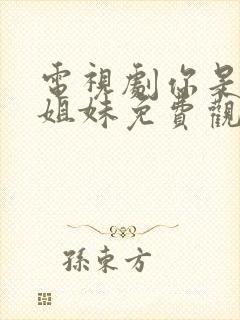 電視劇你是
姐妹免費觀
孫東方